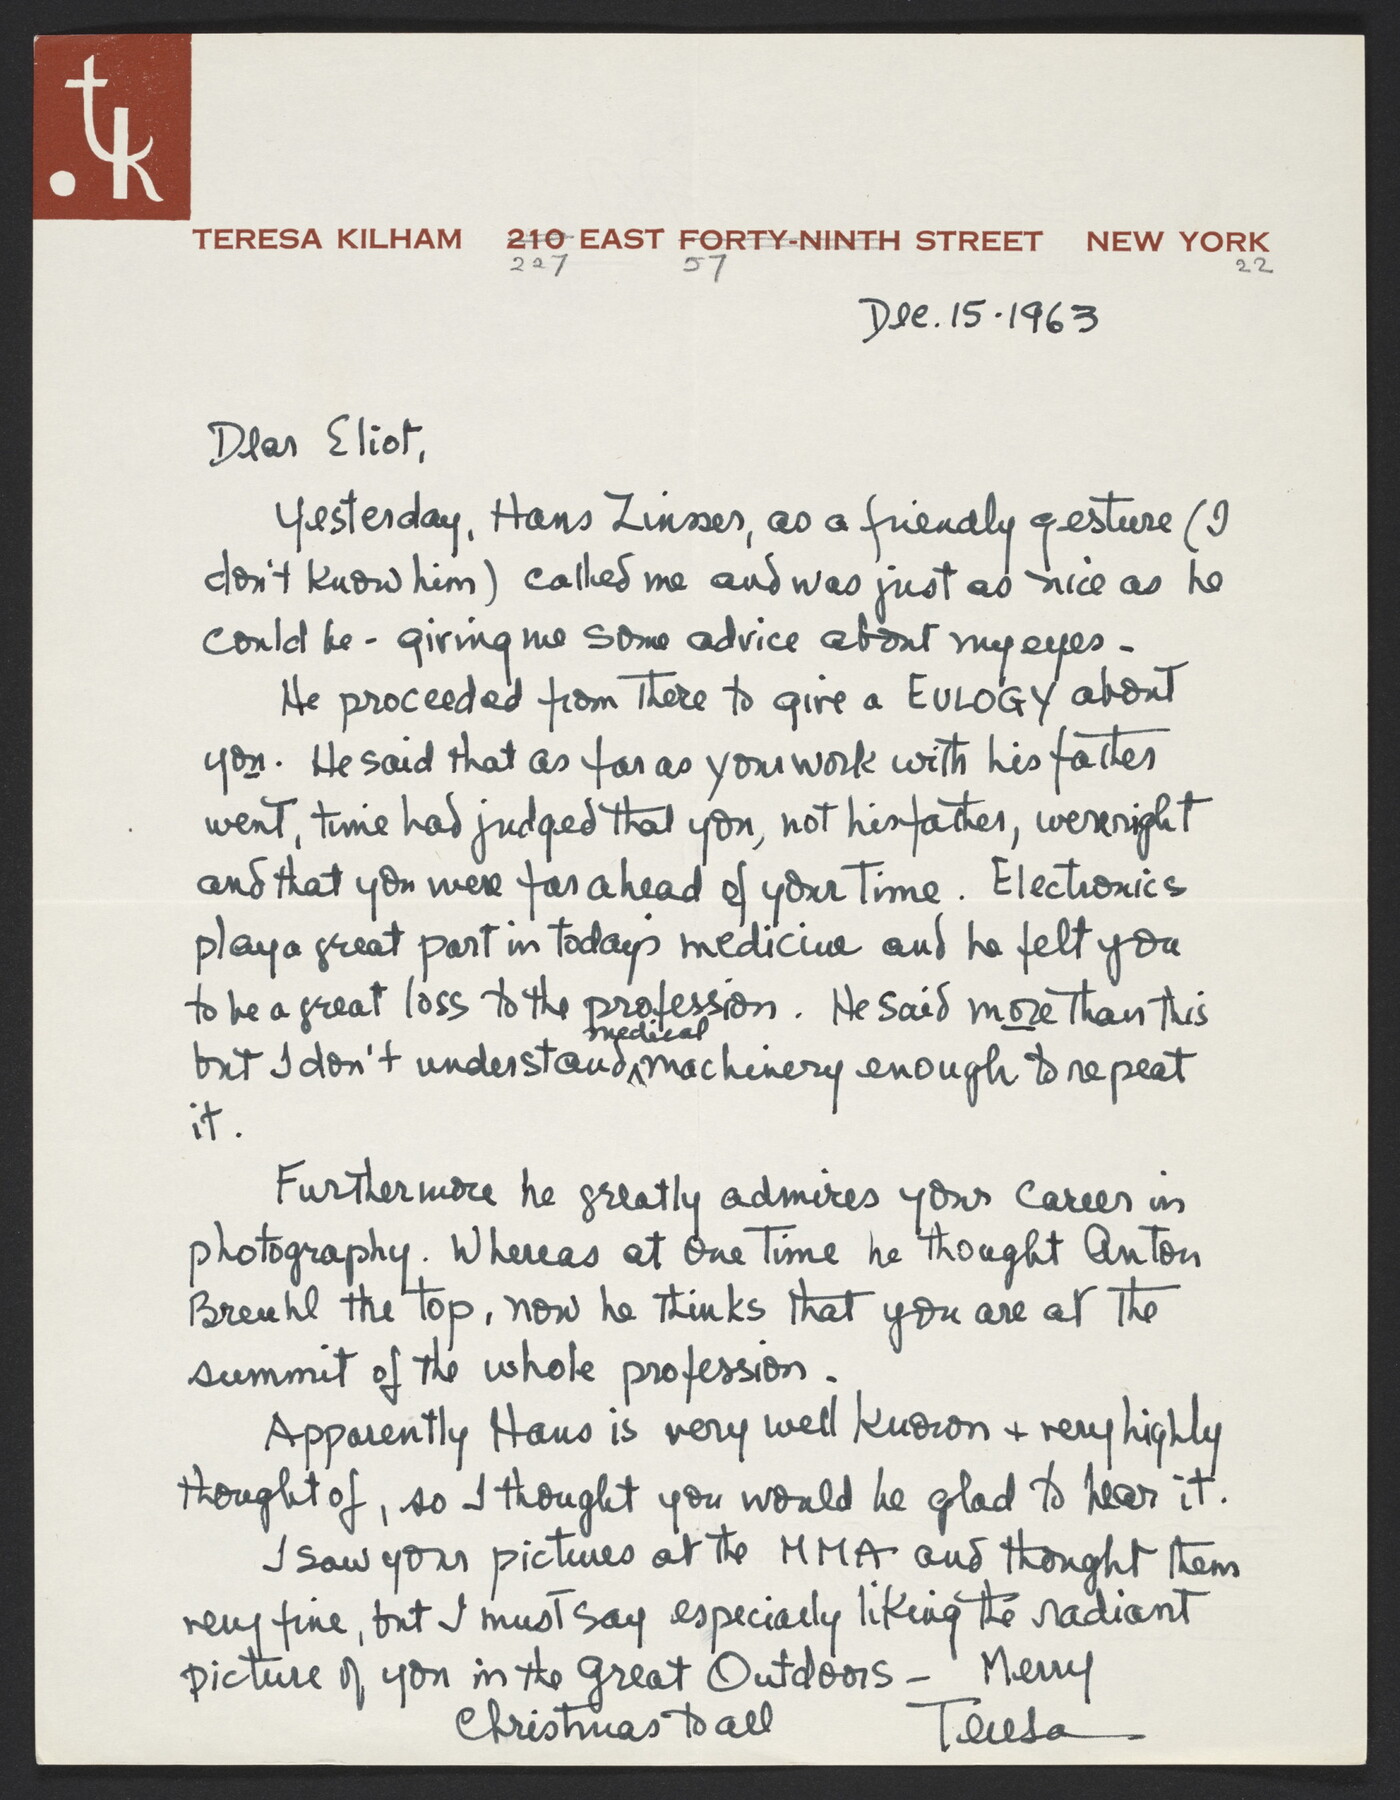 tk
TERESA KILHAM 210 EAST FORTY-NINTH STREET NEW YORK
227 57 22
Dec. 15 · 1963
Dear Eliot,
Yesterday, Hans Zinsser, as a friendly gesture (I
don't know him) called me and was just as nice as he
could be - giving me some advice about my eyes -
He proceeded from there to give a EULOGY about
you. He said that as far as your work with his father
went, time had judged that you, not his father, were right
and that you were far ahead of your time. Electronics
play a great part in today's medicine and he felt you
to be a great loss to the profession. He said more than this
but I don't understand medical machinery enough to repeat
it.
Furthermore he greatly admires your career in
photography. Whereas at one time he thought Anton
Breuhl the top, now he thinks that you are at the
summit of the whole profession.
Apparently Hans is very well known + very highly
thought of, so I thought you would be glad to hear it.
I saw your pictures at the MMA and thought them
very fine, but I must say especially liking the radiant
picture of you in the Great Outdoors - Merry
Christmas to all Teresa